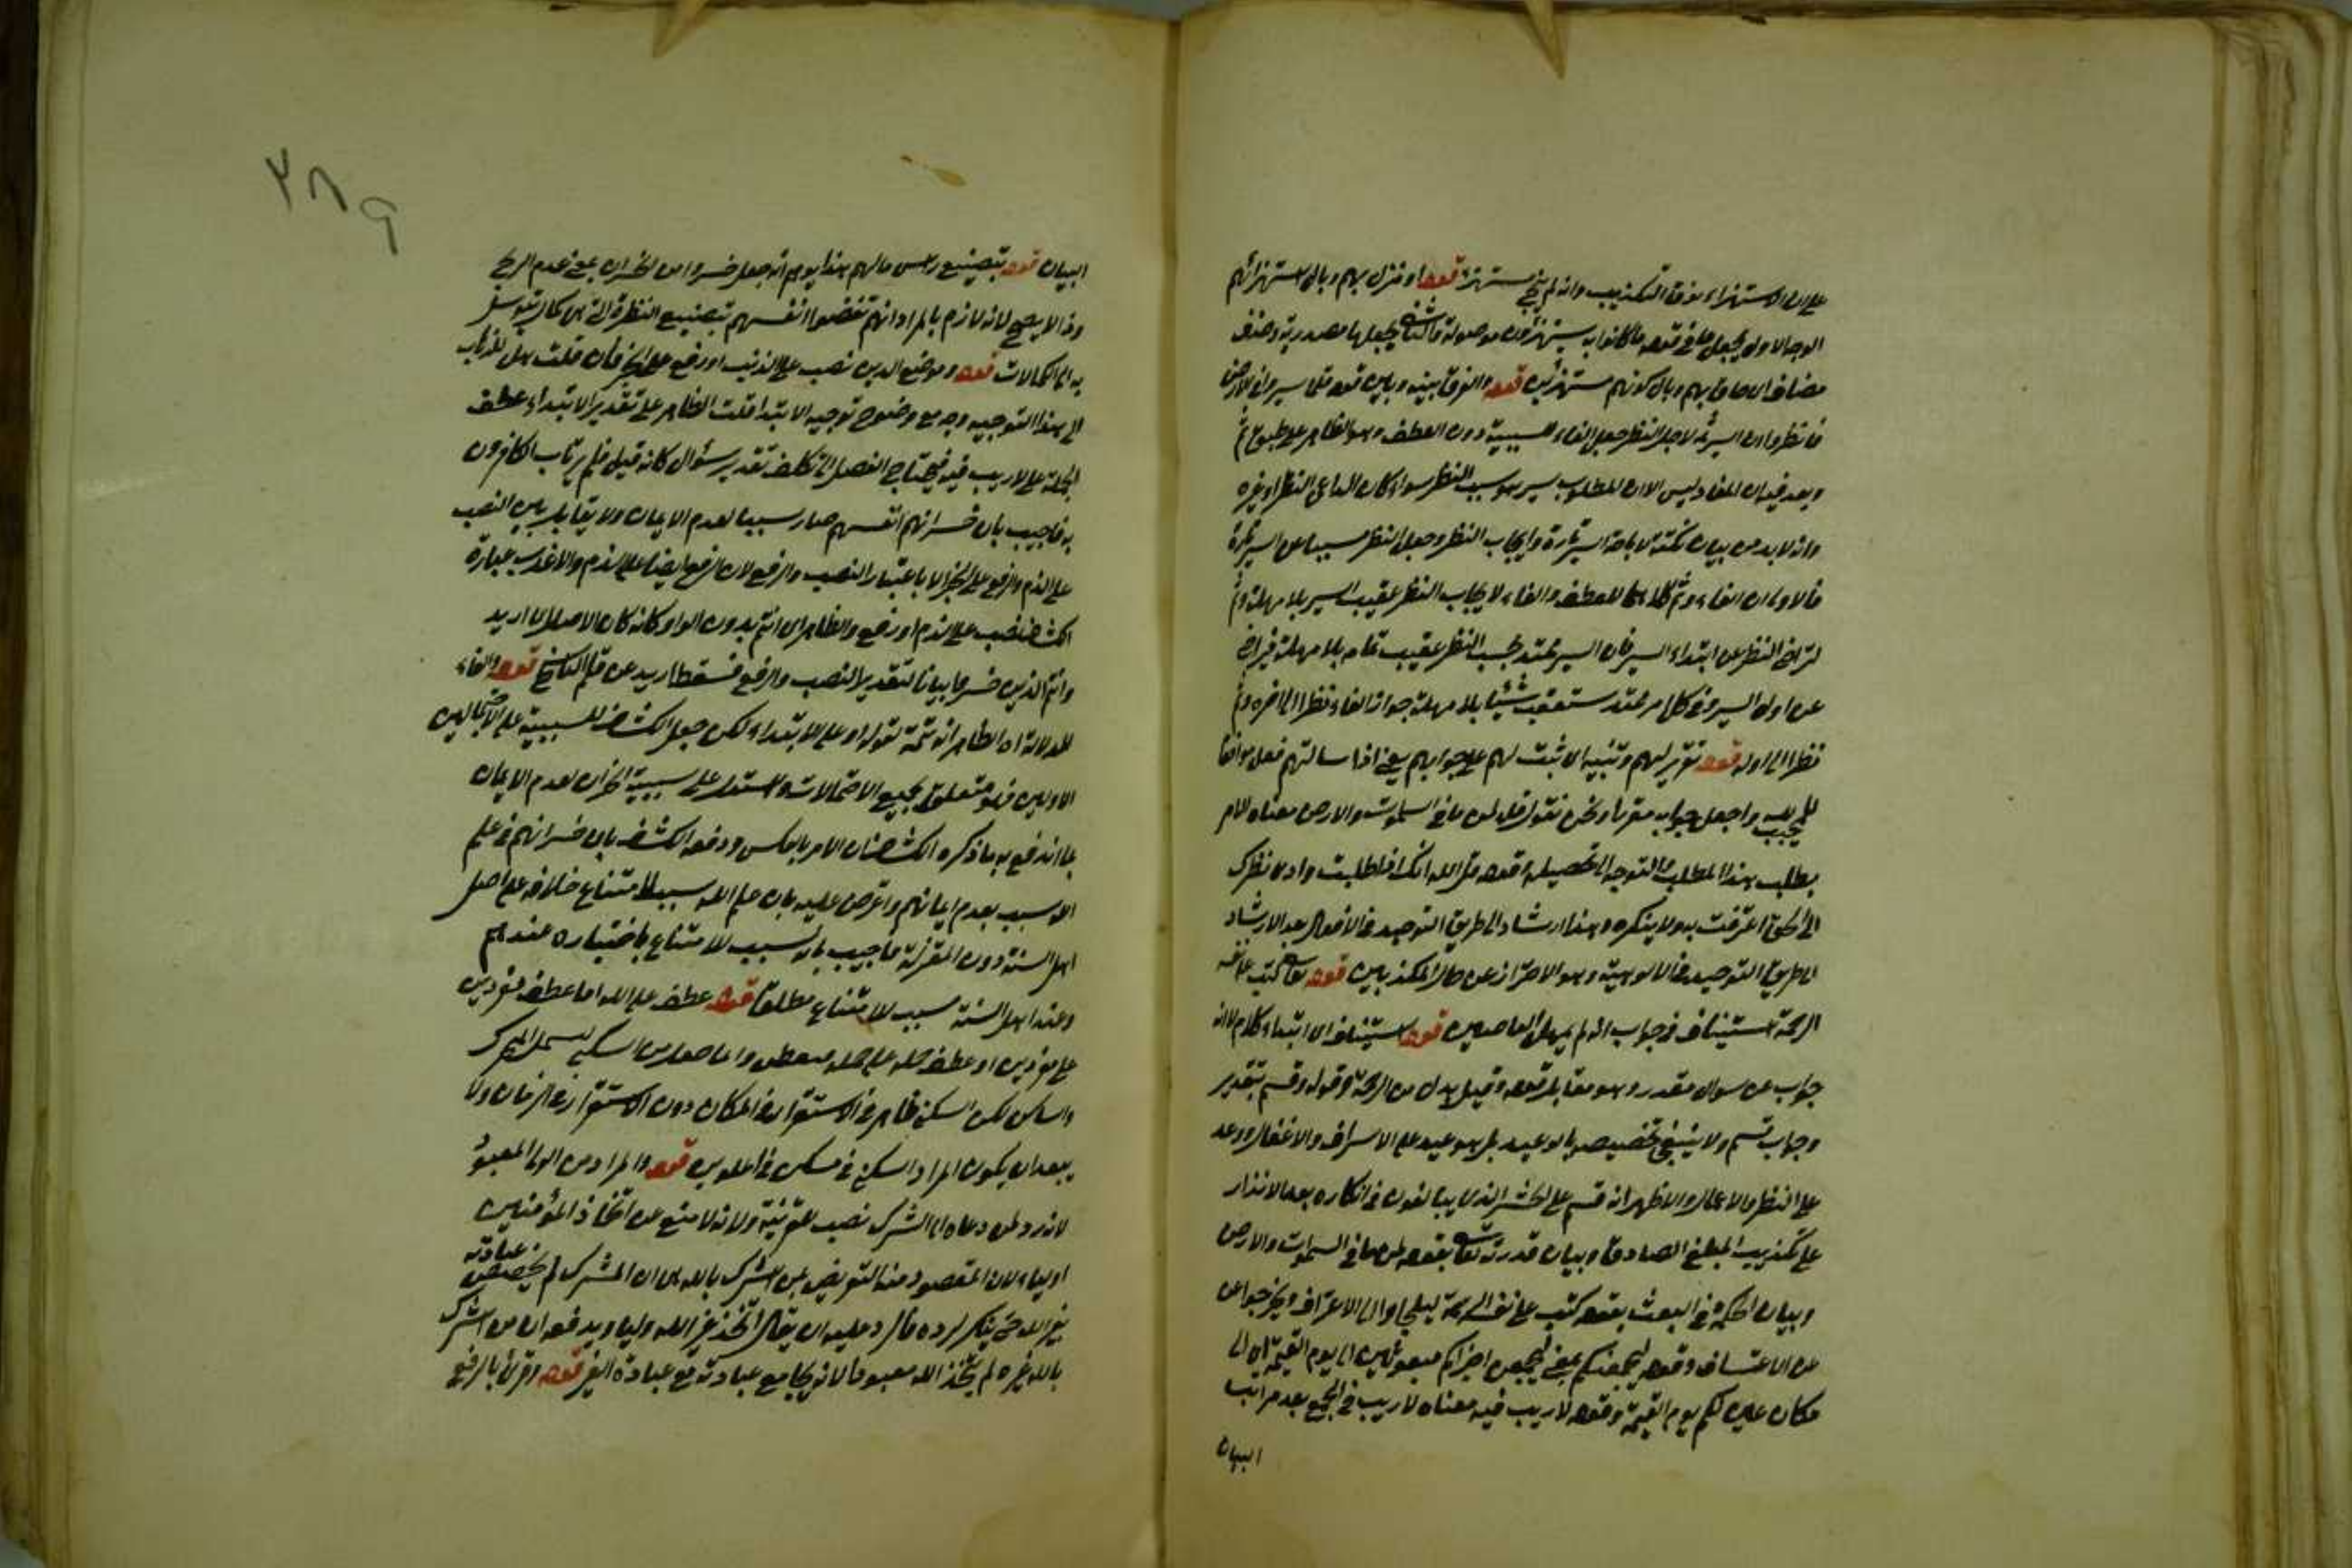 على ان الاستهزاء فوق التكذيب وانه لم ينج مستهزئ قوله او فنزل بهم وبال استهزائهم
الوجه الاول يجعل ما في قوله ما كانوا به يستهزؤن موصولة والثاني يجعلها مصدرية وحذف
مضاف اي حاق بهم وبال كونهم مستهزئين قوله والفرق بينه وبين قوله قل سيروا في الارض
فانظروا ان السير ثمه لاجل النظر جعل الفاء للسببية دون العطف وهو الظاهر على طبق ثم
وبعد فيه ان المفاد ليس الا ان المطلوب سير هو سبب النظر سواء كان الداعي النظر او غيره
وانه لا بد من بيان نكتة لاباحة السير تارة وايجاب النظر وجعل النظر مسببا عن السير تارة
فالاولى ان الفاء وثم كلاهما للعطف والفاء لايجاب النظر عقيب السير بلا مهلة وثم
لتراخي النظر عن ابتداء السير فان السير ممتد يجب النظر عقيب تمامه بلا مهلة فيتراخى
عن اول السير وفي كل امر ممتد يستعقب شيئا بلا مهلة جواز الفاء نظرا الى اخره وثم
نظرا الى اوله قوله تقرير لهم وتنبيه اي ثبت لهم على جوابهم يعني اذا سالتهم فعل موافقا
للمجيب واجعل جوابه مقررا ونحن نقول قل لمن ما في السموات والارض معناه الامر
بطلب هذا المطلب والتوجه الى تحصيله وقوله قل لله انك اذا طلبت وادى نظرك
الى الحق اعترفت به ولا ينكره وهذا ارشاد الى طريق التوحيد في الافعال بعد الارشاد
الى طريق التوحيد في الالوهية وهو الاحتراز عن حال المكذبين قوله تعالى كتب على نفسه
الرحمة استيناف في جواب انه لم يمهل العاصين قوله استيناف اي ابتداء كلام لا انه
جواب عن سوال مقدر وهو مقابل قوله وقيل بدل من الرحمة وقوله وقسم بتقدير
وجواب قسم ولا ينبغي تخصيصه بالوعيد بل هو وعيد على الاسراف والاغفال ووعد
على النظر والاعمال والاظهر انه قسم على الحشر الذي يبالغون في انكاره بعد الانذار
على تكذيب المبلغ الصادق وبيان قدرته تعالى بقوله لمن ما في السموات والارض
وبيان الحكمة في البعث بقوله كتب على نفسه الرحمة ليلجاوا الى الاعتراف ويخرجوا عن
عن الاعتساف وقوله ليجمعنكم بمعنى ليجمعن اجزاكم مبعوثين الى يوم القيمة اي الى
مكان عين لكم يوم القيمة وقوله لا ريب فيه معناه لا ريب في الجمع بعد مراتب
البيان
٢٨٩
البيان قوله بتضييع راس مالهم هذا يوهم انه جعل خسروا من الخسران بمعنى عدم الربح
وذا لا يصح لانه لازم بل المراد انهم نقصوا انفسهم بتضييع النظرة التي هي كمال يتوسل
به الى الكمالات قوله وموضع الذين نصب على الذنب او رفع على الخبر فان قلت هل للذهاب
الى هذا التوجيه وجه مع وضوح توجيه الابتدا قلت الظاهر على تقدير الابتداء عطف
الجملة على لا ريب فيه فيحتاج الفصل الى تكلف تقدير سؤال كانه قيل فلم يرتاب الكافرون
به فاجيب بان خسرانهم انفسهم صار سببا لعدم الايمان ولا يتقابل بين النصب
على الذم والرفع على الخبر الا باعتبار النصب والرفع لان الرفع ايضا على الذم والاقرب عبارة
الكشاف نصب على الذم او رفع والظاهر اي انتم بدون الواو كانه كان الاصل اي اريد
وانتم الذين خسروا بيانا لتقدير النصب والرفع فسقط اريد من قلم الناسخ قوله والفاء
للدلالة اه الظاهر انه تتمة لقوله او على الابتداء لكن جعل الكشاف للسببية على الاحتمالين
الاولين فهو متعلق بجميع الاحتمالات واستدل على سببية الخسران لعدم الايمان
بما اندفع به ما ذكره الكشاف ان الامر بالعكس ودفعه الكشف بان خسرانهم في علم
الله سبب بعدم ايمانهم واعترض عليه بان علم الله سبب للامتناع خلافه على اصل
اهل السنة دون المعتزلة فاجيب بانه سبب للامتناع باختياره عندهم
وعند اهل السنة سبب لامتناع مطلقا قوله عطف على الله اما عطف مفردين
على مفردين او عطف جملة على جملة السكنى ليشمل المتحرك
والساكن لكن السكنى ظاهر في الاستقرار في المكان دون الاستقرار في الزمان ولا
يبعد ان يكون المراد السكنى في مسكن في الملوين قوله والمراد من الولي المعبود
لانه رد لمن دعاه الى الشرك نصب للقرينة ولانه لا منع عن اتخاذ المؤمنين
اولياء لان المقصود منه التعريض لمن اشرك بالله اي ان المشرك لم يخصص عبادته
بغير الله حتى ينكر لرده فالرد عليه ان يقال اتخذ غير الله وليا ويدفعه ان من اشرك
بالله غيره لم يتخذ الله معبودا لانه يجامع عبادته مع عبادة الغير قوله وقرئ بالرفع